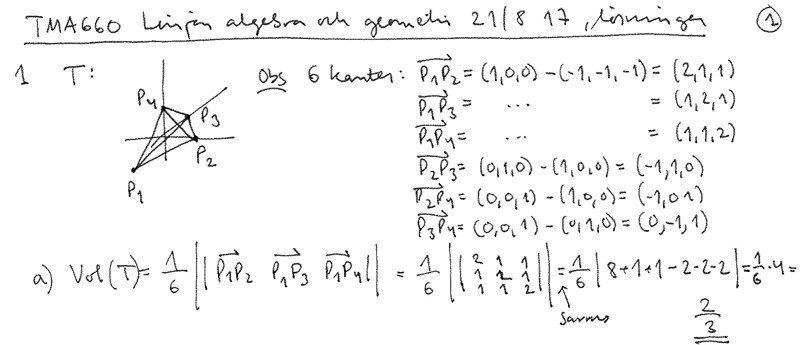 TMA660 Linjär algebra och geometri 21/8 17, lösningar ①
1 T: Obs 6 kanter: P₁P₂ = (1,0,0) - (-1,-1,-1) = (2,1,1)
P₁P₃ = ... = (1,2,1)
P₁P₄ = ... = (1,1,2)
P₂P₃ = (0,1,0) - (1,0,0) = (-1,1,0)
P₂P₄ = (0,0,1) - (1,0,0) = (-1,0,1)
P₃P₄ = (0,0,1) - (0,1,0) = (0,-1,1)
P₄
P₃
P₂
P₁
a) Vol(T) = 1/6 || P₁P₂ P₁P₃ P₁P₄ || = 1/6 || 2 1 1
1 2 1
1 1 2 || = 1/6 | 8+1+1-2-2-2 | = 1/6 · 4 =
Sarrus
2/3